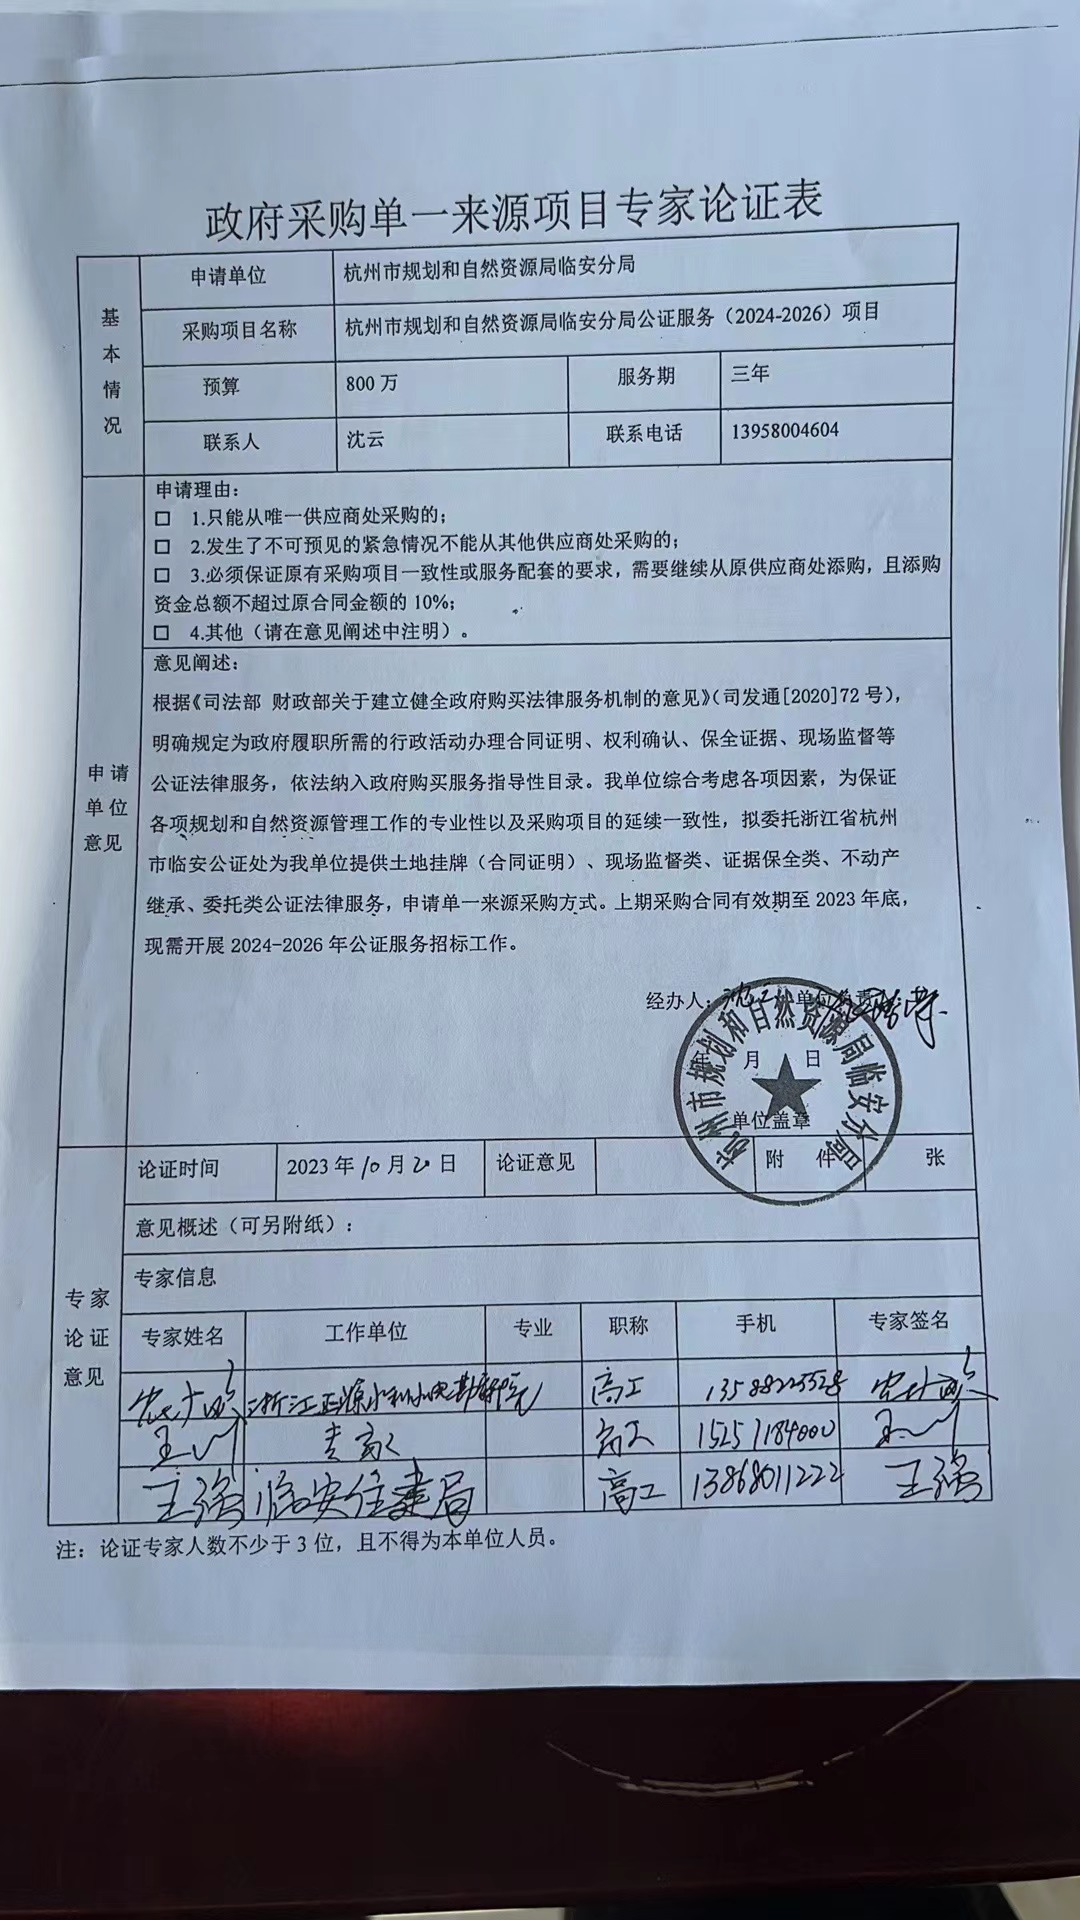 政府采购单一来源项目专家论证表
基本情况
申请单位 杭州市规划和自然资源局临安分局
采购项目名称 杭州市规划和自然资源局临安分局公证服务（2024-2026）项目
预算 800 万 服务期 三年
联系人 沈云 联系电话 13958004604
申请单位意见
申请理由：
□ 1.只能从唯一供应商处采购的；
□ 2.发生了不可预见的紧急情况不能从其他供应商处采购的；
□ 3.必须保证原有采购项目一致性或服务配套的要求，需要继续从原供应商处添购，且添购
资金总额不超过原合同金额的 10%；
□ 4.其他（请在意见阐述中注明）。
意见阐述：
根据《司法部 财政部关于建立健全政府购买法律服务机制的意见》（司发通[2020]72 号），
明确规定为政府履职所需的行政活动办理合同证明、权利确认、保全证据、现场监督等
公证法律服务，依法纳入政府购买服务指导性目录。我单位综合考虑各项因素，为保证
各项规划和自然资源管理工作的专业性以及采购项目的延续一致性，拟委托浙江省杭州
市临安公证处为我单位提供土地挂牌（合同证明）、现场监督类、证据保全类、不动产
继承、委托类公证法律服务，申请单一来源采购方式。上期采购合同有效期至 2023 年底，
现需开展 2024-2026 年公证服务招标工作。
经办人： 单位负责
年 月 日
单位盖章
杭州市规划和自然资源局临安分局
专家论证意见
论证时间 2023 年 10 月 20 日 论证意见 附 件 张
意见概述（可另附纸）：
专家信息
专家姓名 工作单位 专业 职称 手机 专家签名
浙江正源水利水电勘 院 高工
高工 15257184000
王强 临安住建局 高工 13868011222 王强
注：论证专家人数不少于 3 位，且不得为本单位人员。